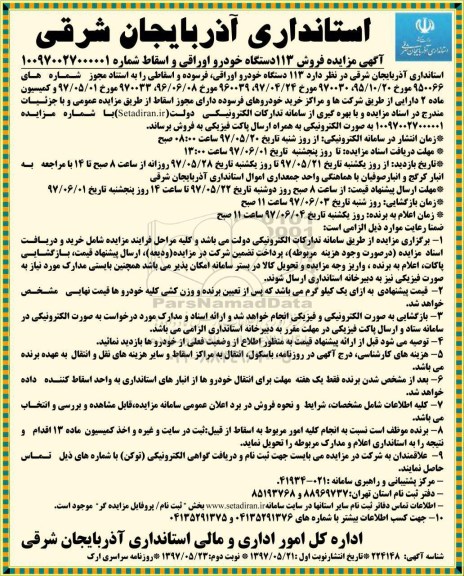 استانداری آذربایجان شرقی
آگهی مزایده فروش ۱۱۳دستگاه خودرو اوراقی و اسقاط شماره ۱۰۰۹۷۰۰۲۷۰۰۰۰۰۱
استانداری آذربایجان شرقی در نظر دارد ۱۱۳ دستگاه خودرو اوراقی، فرسوده و اسقاطی را به استناد مجوز شماره های
۹۵۰۰۶۶ مورخ ۹۵/۱۰/۲۰ ۹۷۰۰۳۰ مورخ ۹۷/۰۴/۲۴ ۹۶۰۰۳۹ مورخ ۹۶/۰۶/۰۸ ۹۷۰۰۳۳ مورخ ۹۷/۰۵/۰۱ و کمیسیون
ماده ۲ دارایی از طریق شرکت ها و مراکز خرید خودروهای فرسوده دارای مجوز اسقاط از طریق مزایده عمومی و با جزئیات
مندرج در اسناد مزایده و با بهره گیری از سامانه تدارکات الکترونیکی دولت(Setadiran.ir)با شماره مزایده
۱۰۰۹۷۰۰۲۷۰۰۰۰۰۱ به صورت الکترونیکی به همراه ارسال پاکت فیزیکی به فروش برساند.
*زمان انتشار در سامانه الکترونیکی: از روز شنبه تاریخ ۹۷/۰۵/۲۰ ساعت ۰۸:۰۰ صبح
* مهلت دریافت اسناد مزایده: تا روز پنجشنبه تاریخ ۹۷/۰۶/۰۱ ساعت ۱۳:۰۰
*تاریخ بازدید: از روز یکشنبه تاریخ ۹۷/۰۵/۲۱ تا روز یکشنبه تاریخ ۹۷/۰۵/۲۸ روزانه از ساعت ۸ صبح تا ۱۴ با مراجعه به
انبار کرگج و انبارصوفیان با هماهنگی واحد جمعداری اموال استانداری آذربایجان شرقی
*مهلت ارسال پیشنهاد قیمت: از ساعت ۸ صبح روز دوشنبه تاریخ ۹۷/۰۵/۲۲ تا ساعت ۱۴ روز پنجشنبه تاریخ ۹۷/۰۶/۰۱
*زمان بازگشایی: روز شنبه تاریخ ۹۷/۰۶/۰۳ ساعت ۱۱ صبح
* زمان اعلام به برنده: روز یکشنبه تاریخ ۹۷/۰۶/۰۴ ساعت ۱۱ صبح
ضمنا رعایت موارد ذیل الزامی است:
۱- برگزاری مزایده از طریق سامانه تدارکات الکترونیکی دولت می باشد و کلیه مراحل فرایند مزایده شامل خرید و دریافت
اسناد مزایده (درصورت وجود هزینه مربوطه)، پرداخت تضمین شرکت در مزایده(ودیعه)، ارسال پیشنهاد قیمت، بازگشایی
پاکات، اعلام به برنده ، واریز وجه مزایده و تحویل کالا در بستر سامانه امکان پذیر می باشد همچنین بایستی مدارک مورد نیاز به
صورت فیزیکی نیز به دبیرخانه استانداری ارسال شوند.
۲- قیمت پیشنهادی به ازای یک کیلو گرم می باشد که پس از تعیین برنده و وزن کشی کلیه خودرو ها قیمت نهایی مشخص
خواهد شد.
۳- بازگشایی به صورت الکترونیکی و فیزیکی انجام خواهد شد و ارائه اسناد و مدارک مورد درخواست به صورت الکترونیکی در
سامانه ستاد و ارسال پاکت فیزیکی در مهلت مقرر به دبیرخانه استانداری الزامی می باشد.
۴- توصیه می شود قبل از ارائه پیشنهاد قیمت به منظور اطلاع از وضعیت فعلی از خودرو ها بازدید نمائید.
۵- هزینه های کارشناسی، درج آگهی در روزنامه، باسکول، انتقال به مراکز اسقاط و سایر هزینه های نقل و انتقال به عهده برنده
می باشد.
۶- بعد از مشخص شدن برنده فقط یک هفته مهلت برای انتقال خودرو ها از انبار های استانداری به واحد اسقاط کننده داده
خواهد شد.
۷- کلیه اطلاعات شامل مشخصات، شرایط و نحوه فروش در برد اعلان عمومی سامانه مزایده،قابل مشاهده و بررسی و انتخاب
می باشد.
۸- برنده موظف است نسبت به انجام کلیه امور مربوط به اسقاط از قبیل:ثبت در سایت و غیره و اخذ کمیسیون ماده ۱۳ اقدام و
نتیجه را به استانداری اعلام و مدارک مربوطه را تحویل نماید.
۹- علاقمندان به شرکت در مزایده می بایست جهت ثبت نام و دریافت گواهی الکترونیکی (توکن) با شماره های ذیل تماس
حاصل نمایند.
– مرکز پشتیبانی و راهبری سامانه :۰۲۱-۴۱۹۳۴
– دفتر ثبت نام استان تهران:۸۸۹۶۹۷۳۷ و ۸۵۱۹۳۷۶۸
– اطلاعات تماس دفاتر ثبت نام سایر استانها در سایت سامانهwww.setadiran.ir بخش "ثبت نام / پروفایل مزایده گر" موجود است.
۱۰- جهت کسب اطلاعات بیشتر با شماره های ۰۴۱۳۵۲۹۱۳۷۶ و ۰۴۱۳۵۲۹۱۳۷۵
اداره کل امور اداری و مالی استانداری آذربایجان شرقی
شناسه آگهی: ۲۲۴۱۴۸ *تاریخ انتشارنوبت اول :۱۳۹۷/۰۵/۲۱ * نوبت دوم:۱۳۹۷/۰۵/۲۳ *روزنامه سراسری ارک
ParsNamadData